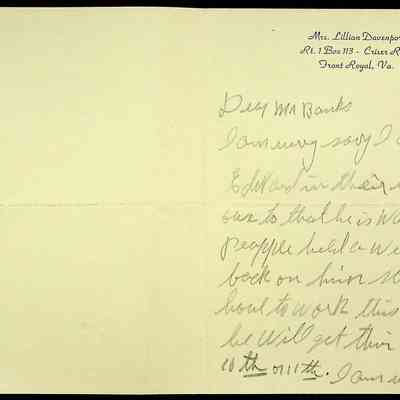 Mrs. Lillian Davenpor
Rt. 1 Box 113 - Criser R
Front Royal, Va.
Dear Mr Banks
I am very sory I
Edward in their
our to that he is Wa
peapple held a We
back on him
bout to work this
he will get thir
10th or 11th. I am